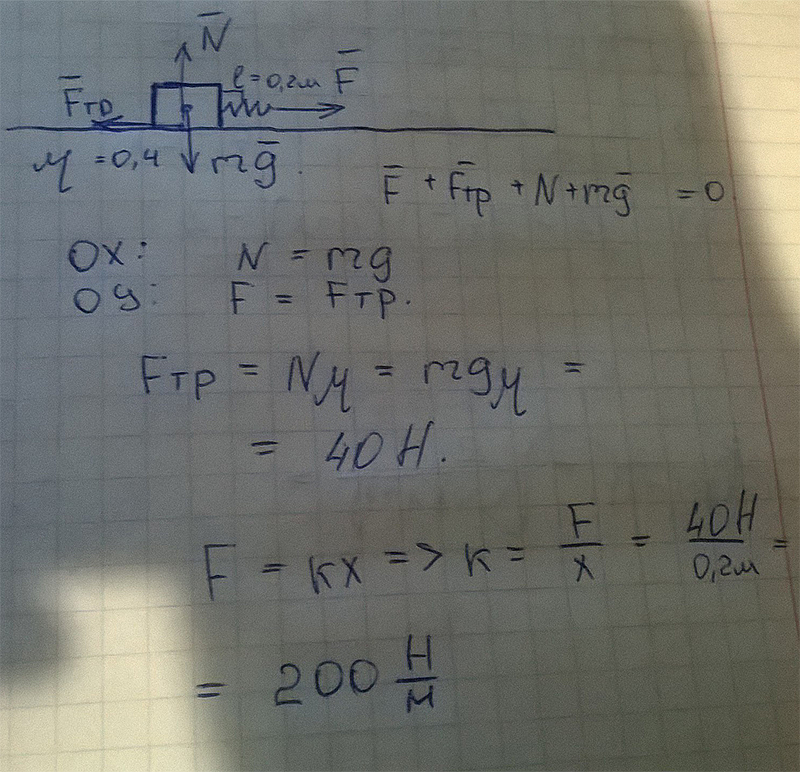 N̅
F̅тр l=0,2м F̅
μ=0,4 mg̅.
F̅ + F̅тр + N + mg̅ = 0
OX: N = mg
OY: F = Fтр.
Fтр = Nμ = mgμ =
= 40 Н.
F = кх => к = F/х = 40Н/0,2м =
= 200 Н/м